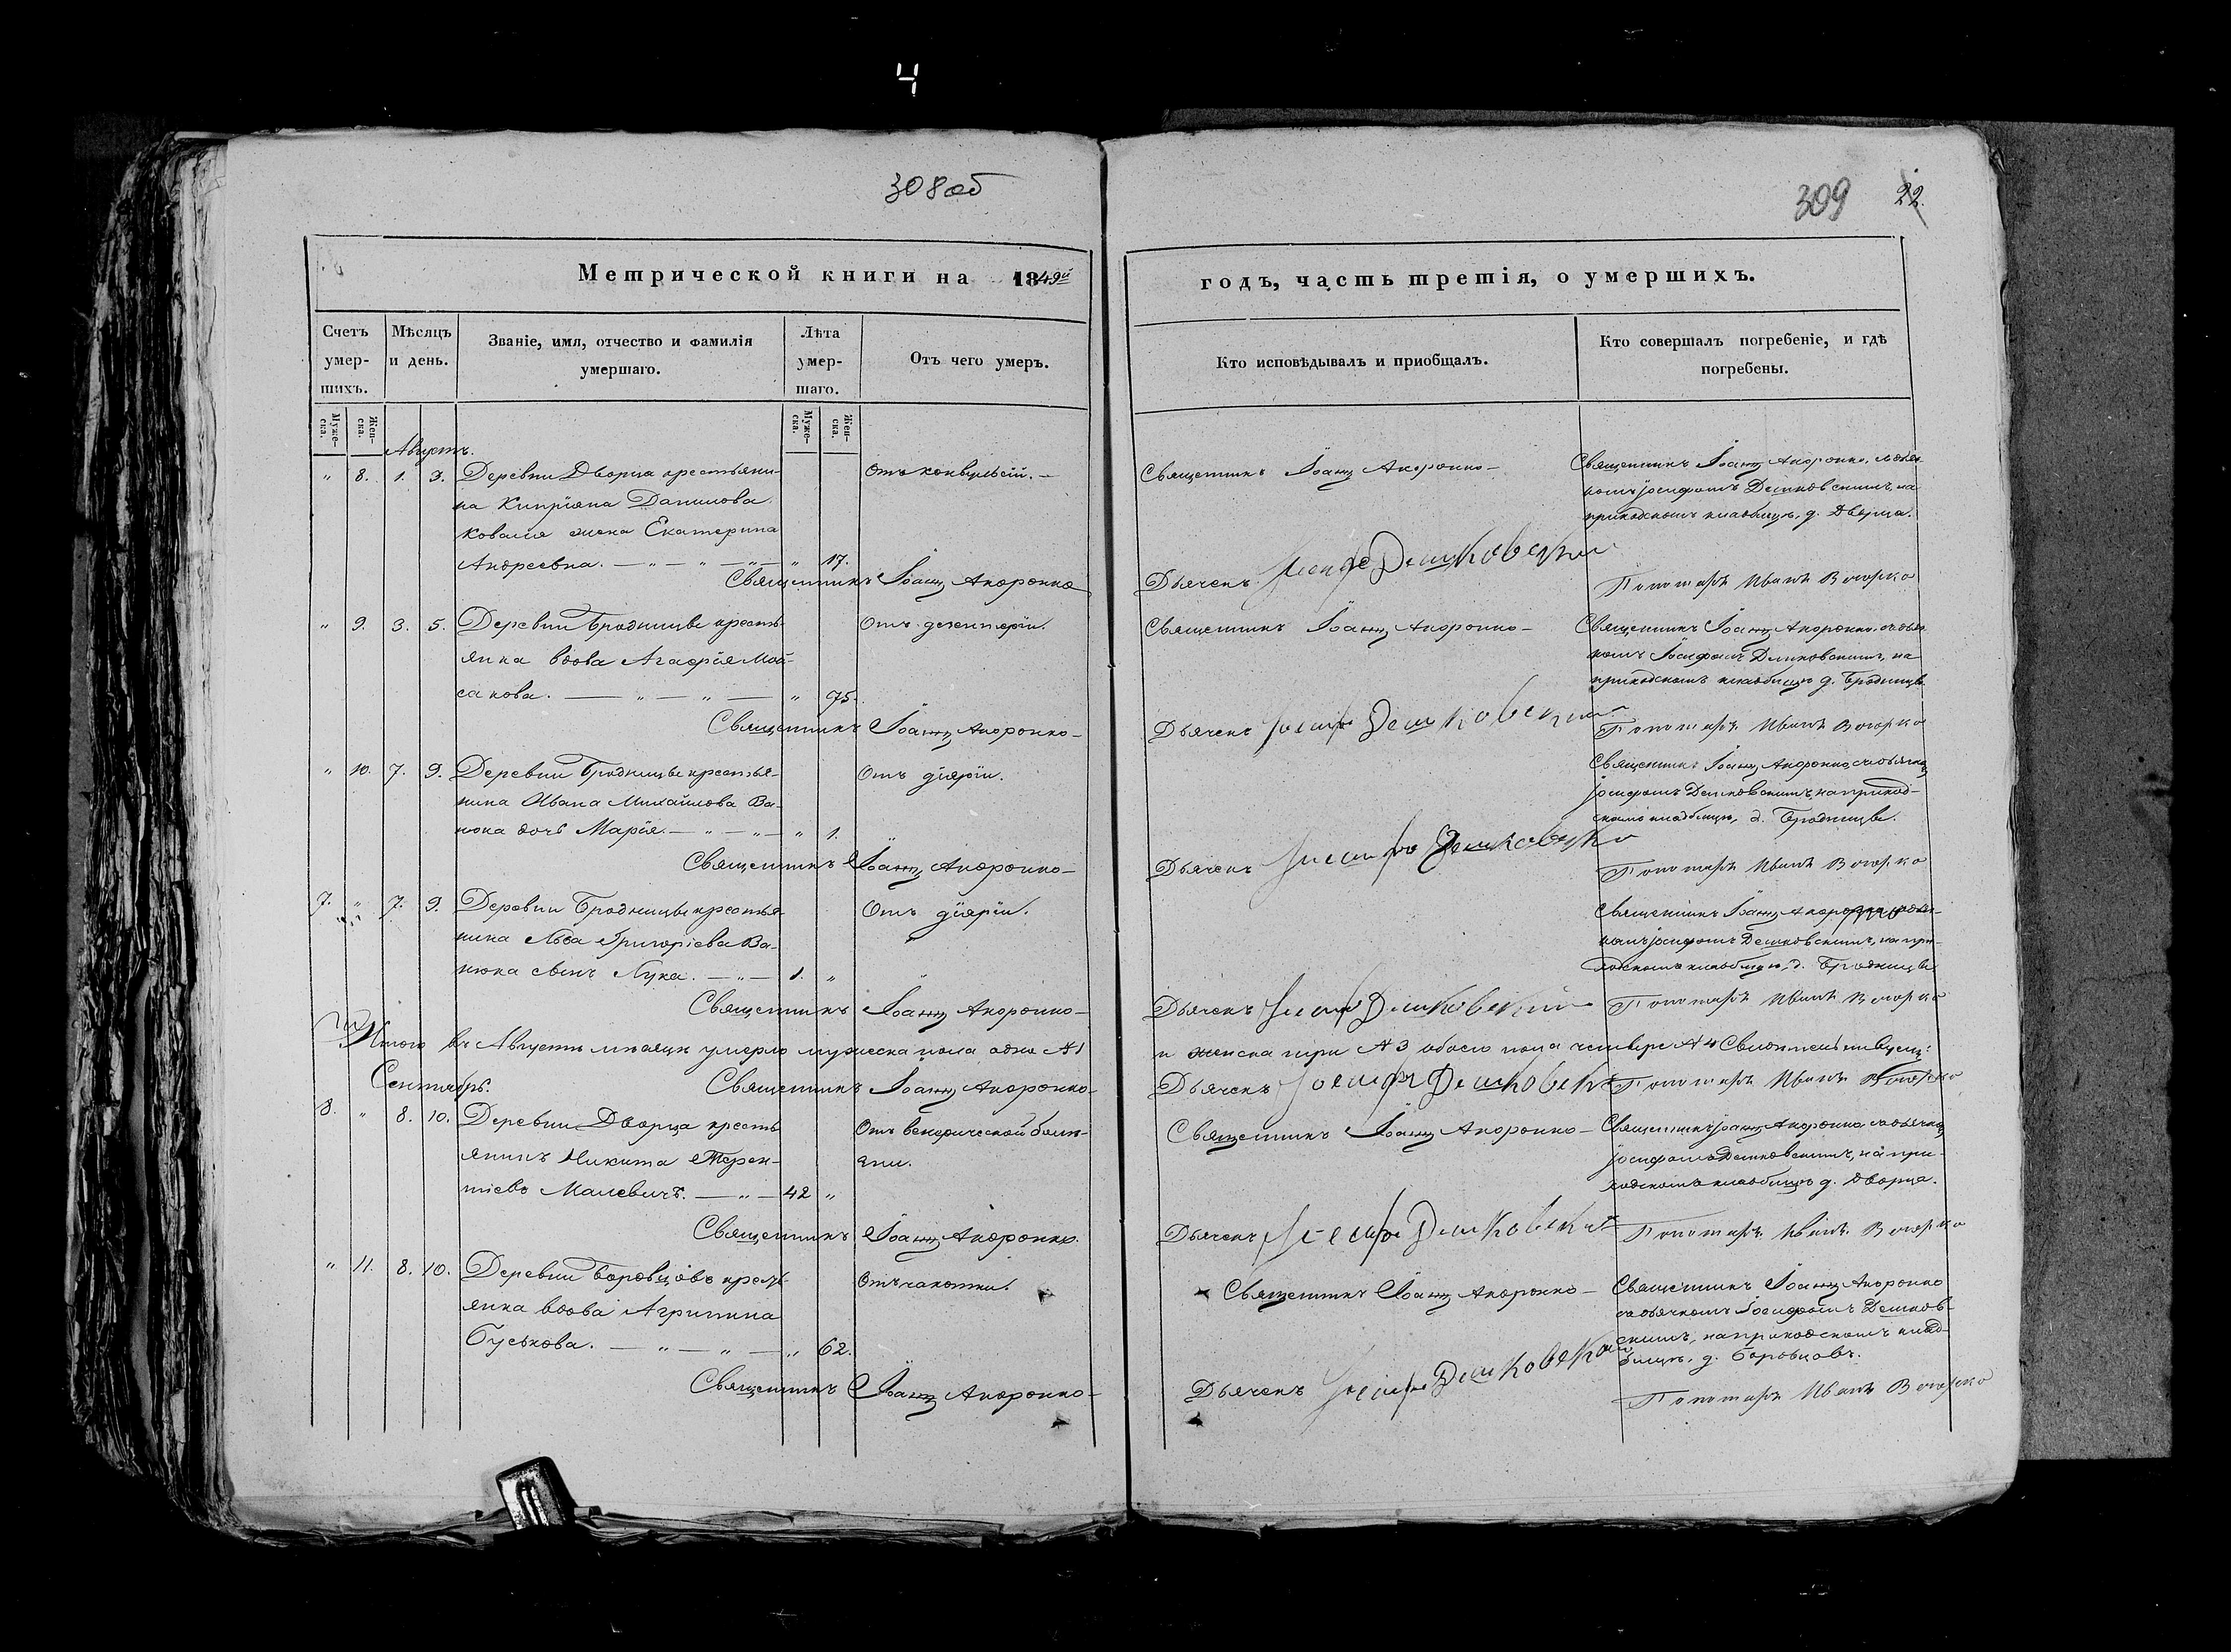 4
308 об
309 22.
Метрической книги на 1849й
годъ, часть третія, о умершихъ.
Счетъ умер-шихъ.
Мѣсяцъ и день.
Званіе, имя, отчество и фамилія умершаго.
Лѣта умер-шаго.
Отъ чего умеръ.
Кто исповѣдывалъ и приобщалъ.
Кто совершалъ погребеніе, и гдѣ погребены.
Муже-ска. Жен-ска.
Муже-ска. Жен-ска.
Августъ.
" 8. 1. 3. Деревни Дворца крестьяни-
на Кипріяна Данилова
Коваля жена Екатерина
Андреевна. — " — " — " — " 17.
Отъ конвульсій. —
Священникъ Іоаннъ Андронко —
Священникъ Іоаннъ Андронко, съ дьяч-
комъ Іосифомъ Демковскимъ, на
приходскомъ кладбищѣ, д. Дворца.
Священникъ Іоаннъ Андронко
Дьячекъ Іосифъ Демковскій
Пономарь Иванъ
" 9. 3. 5. Деревни Бродницы кресть-
янка вдова Агафія Мой-
сакова. — " — " — " 75.
Отъ дезентеріи.
Священникъ Іоаннъ Андронко —
Священникъ Іоаннъ Андронко, съ дьяч-
комъ Іосифомъ Демковскимъ, на
приходскомъ кладбищѣ д. Бродницы
Священникъ Іоаннъ Андронко —
Дьячекъ Іосифъ Демковскій
Пономарь Иванъ
" 10. 7. 9. Деревни Бродницы крестья-
нина Ивана Михайлова Ва-
нюка дочь Марія. — " — " — " 1.
Отъ діяріи.
Священникъ Іоаннъ Андронко, съ дьячкомъ
Іосифомъ Демковскимъ, на приход-
скомъ кладбищѣ, д. Бродницы.
Священникъ Іоаннъ Андронко —
Дьячекъ Іосифъ Демковскій
Пономарь Иванъ
7. " 7. 9. Деревни Бродницы крестья-
нина Льва Григоріева Ва-
нюка сынъ Лука. — " — 1. "
Отъ діяріи.
Священникъ Іоаннъ Андронко съ дьяч-
комъ Іосифомъ Демковскимъ, на при-
ходскомъ кладбищѣ, д. Бродницы
Священникъ Іоаннъ Андронко —
Дьячекъ Іосифъ Демковскій
Пономарь Иванъ
Итого въ Августѣ мѣсяцѣ умерло мужеска пола одно №1
и женска три №3 обоего пола четверо №4
Сентябрь.
Священникъ Іоаннъ Андронко —
Дьячекъ Іосифъ Демковскій
Пономарь Иванъ
8. " 8. 10. Деревни Дворца кресть
янинъ Никита Терен-
тіевъ Малевичъ. — " — 42 "
Отъ венерической болѣ-
зни.
Священникъ Іоаннъ Андронко —
Священникъ Іоаннъ Андронко съ дьячкомъ
Іосифомъ Демковскимъ, на при-
ходскомъ кладбищѣ д. Дворца.
Священникъ Іоаннъ Андронко.
Дьячекъ Іосифъ Демковскій
Пономарь Иванъ
" 11. 8. 10. Деревни Боровцовъ кресть-
янка вдова Агрипина
Буськова. — " — " — " 62.
Отъ чахотки.
Священникъ Іоаннъ Андронко —
Священникъ Іоаннъ Андронко
съ дьячкомъ Іосифомъ Демков-
скимъ, на приходскомъ клад-
бищѣ, д. Боровцовъ.
Священникъ Іоаннъ Андронко —
Дьячекъ Іосифъ Демковскій
Пономарь Иванъ